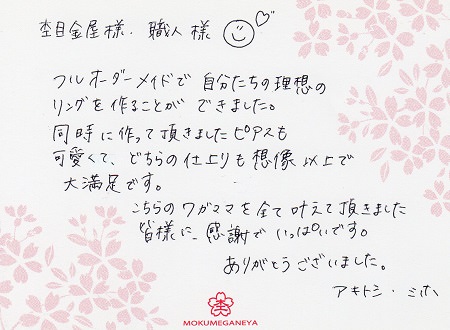 杢目金屋様・職人様
フルオーダーメイドで自分たちの理想の
リングを作ることができました。
同時に作って頂きましたピアスも
可愛くて、どちらの仕上りも想像以上で
大満足です。
こちらのワガママを全て叶えて頂きました
皆様に、感謝でいっぱいです。
ありがとうございました。
アキトシ・ミホ
MOKUMEGANEYA